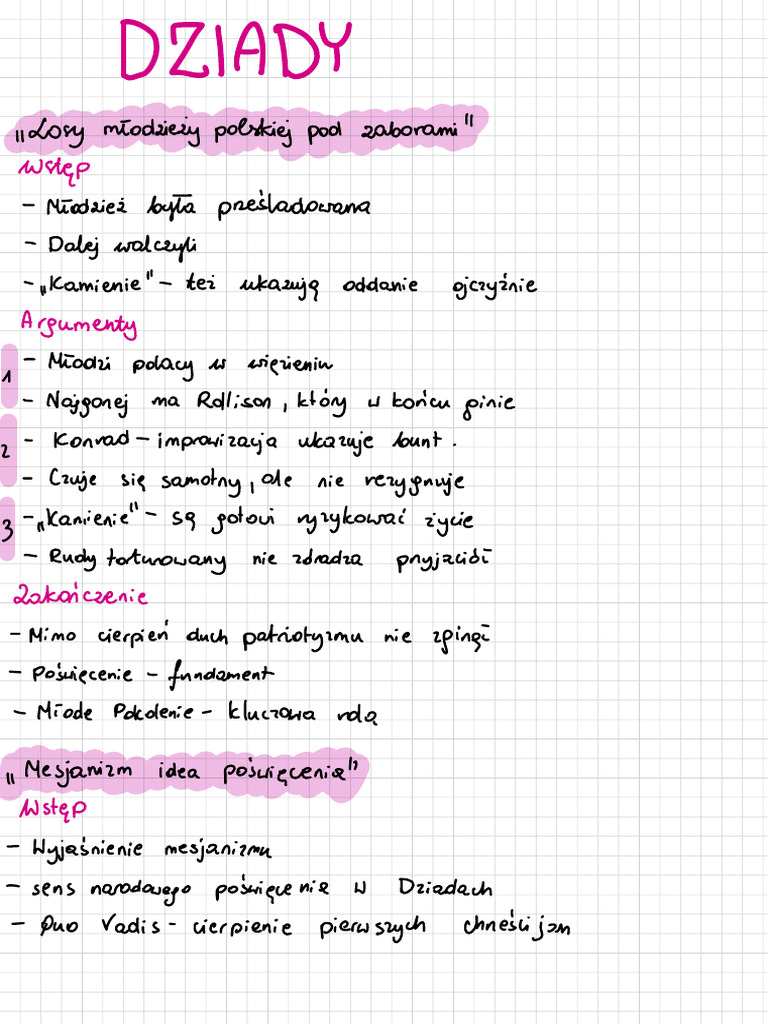 DZIADY
"Losy młodzieży polskiej pod zaborami"
Wstęp
- Młodzież była prześladowana
- Dalej walczyli
- "Kamienie" - też ukazują oddanie ojczyźnie
Argumenty
1 - Młodzi polacy w więzieniu
- Najgorzej ma Rollison, który w końcu ginie
2 - Konrad - improwizacja ukazuje bunt.
- Czuje się samotny, ale nie rezygnuje
3 - "Kamienie" - są gotowi ryzykować życie
- Rudy torturowany nie zdradza przyjaciół
Zakończenie
- Mimo cierpień duch patriotyzmu nie zginął
- Poświęcenie - fundament
- Młode Pokolenie - kluczowa rola
"Mesjanizm idea poświęcenia"
Wstęp
- Wyjaśnienie mesjanizmu
- sens narodowego poświęcenia w Dziadach
- Quo Vadis - cierpienie pierwszych chrześcijan